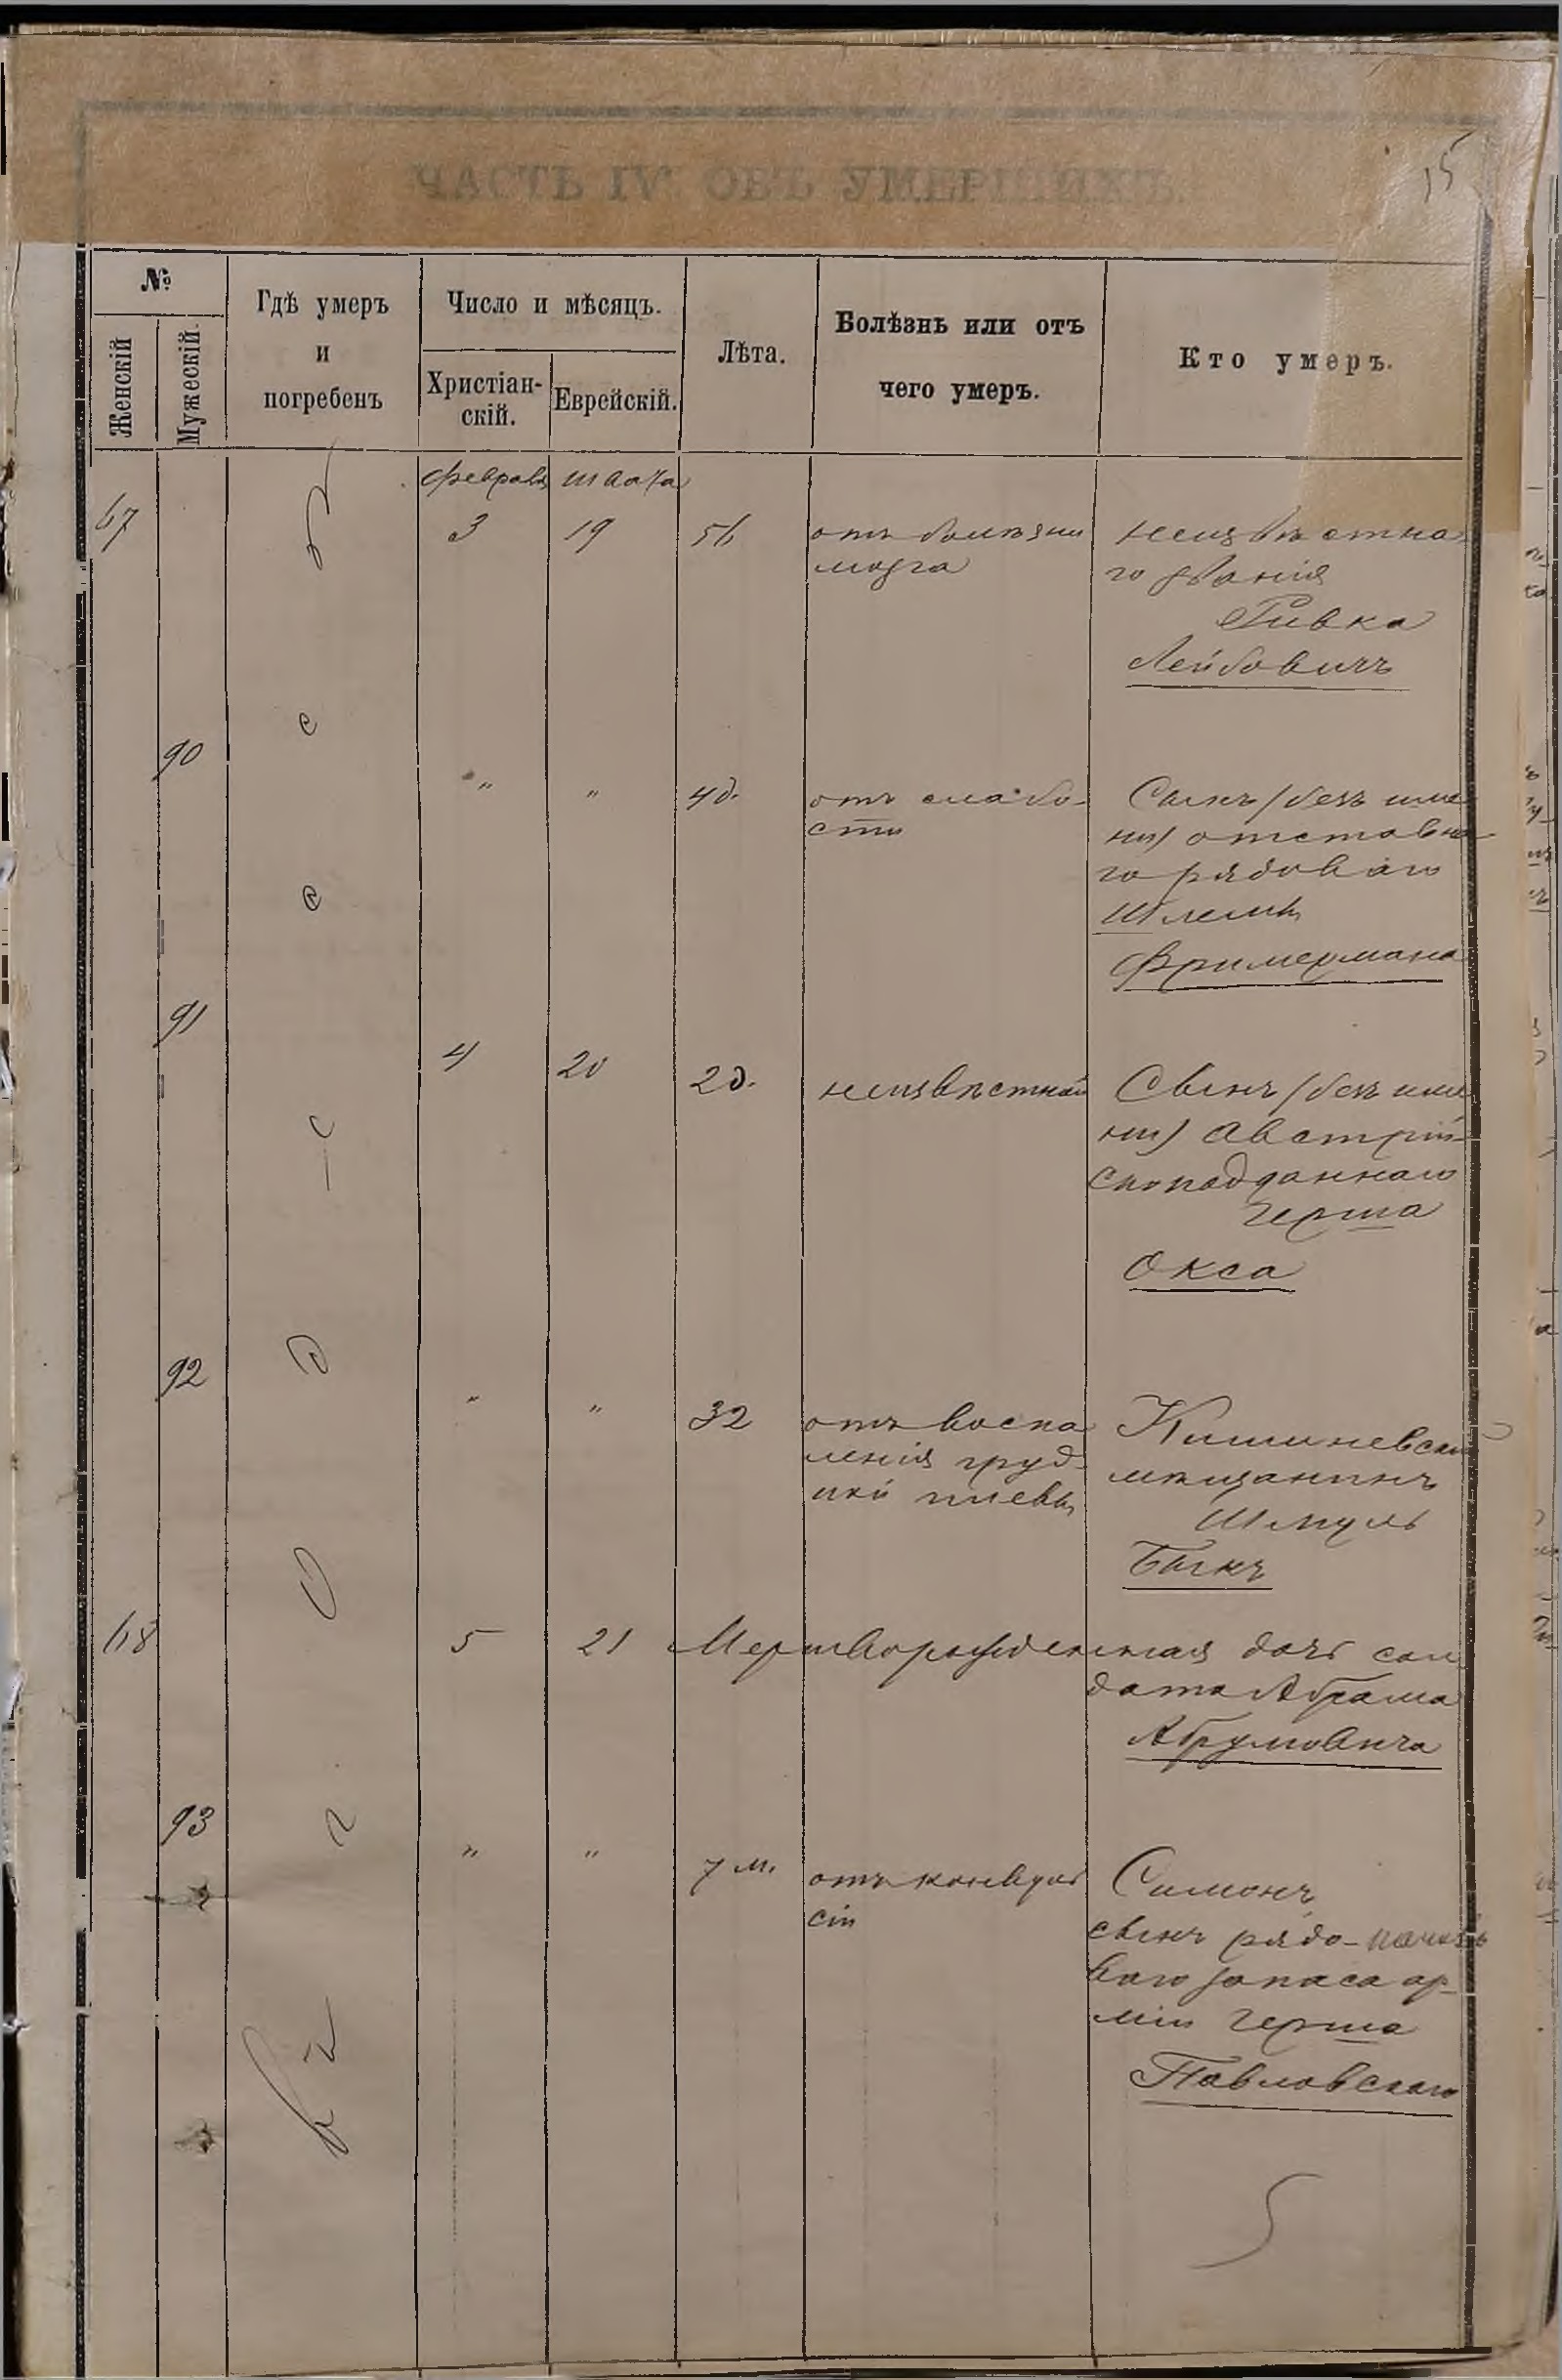 ЧАСТЬ IV. ОБЪ УМЕРШИХЪ.
15
№
Женскій
Мужескій.
Гдѣ умеръ
и
погребенъ
Число и мѣсяцъ.
Христіан-
скій.
Еврейскій.
Лѣта.
Болѣзнь или отъ
чего умеръ.
Кто умеръ.
въ г. Одессѣ
февраля швата
67 3 19 56 отъ болѣзни неизвѣстна
мозга го званія
Ривка
Лейбовичъ
90 " " 4 д. отъ слабо- Сынъ (безъ име
сти ни) отставна
го рядоваго
Шлемы
Фримермана
91 4 20 2 д. неизвѣстной Сынъ (безъ име
ни) австрій-
скоподданнаго
Герша
Окса
92 " " 32 отъ воспа Кишиневскій
ленія груд мѣщанинъ
ной плевы Шмуль
Быкъ
68 5 21 Мертворожденная дочь сол
дата Абрама
Абрумовича
93 " " 7 м. отъ конвуль Симонъ
сіи сынъ рядо-
ваго запаса ар-
міи Герша
Павловскаго